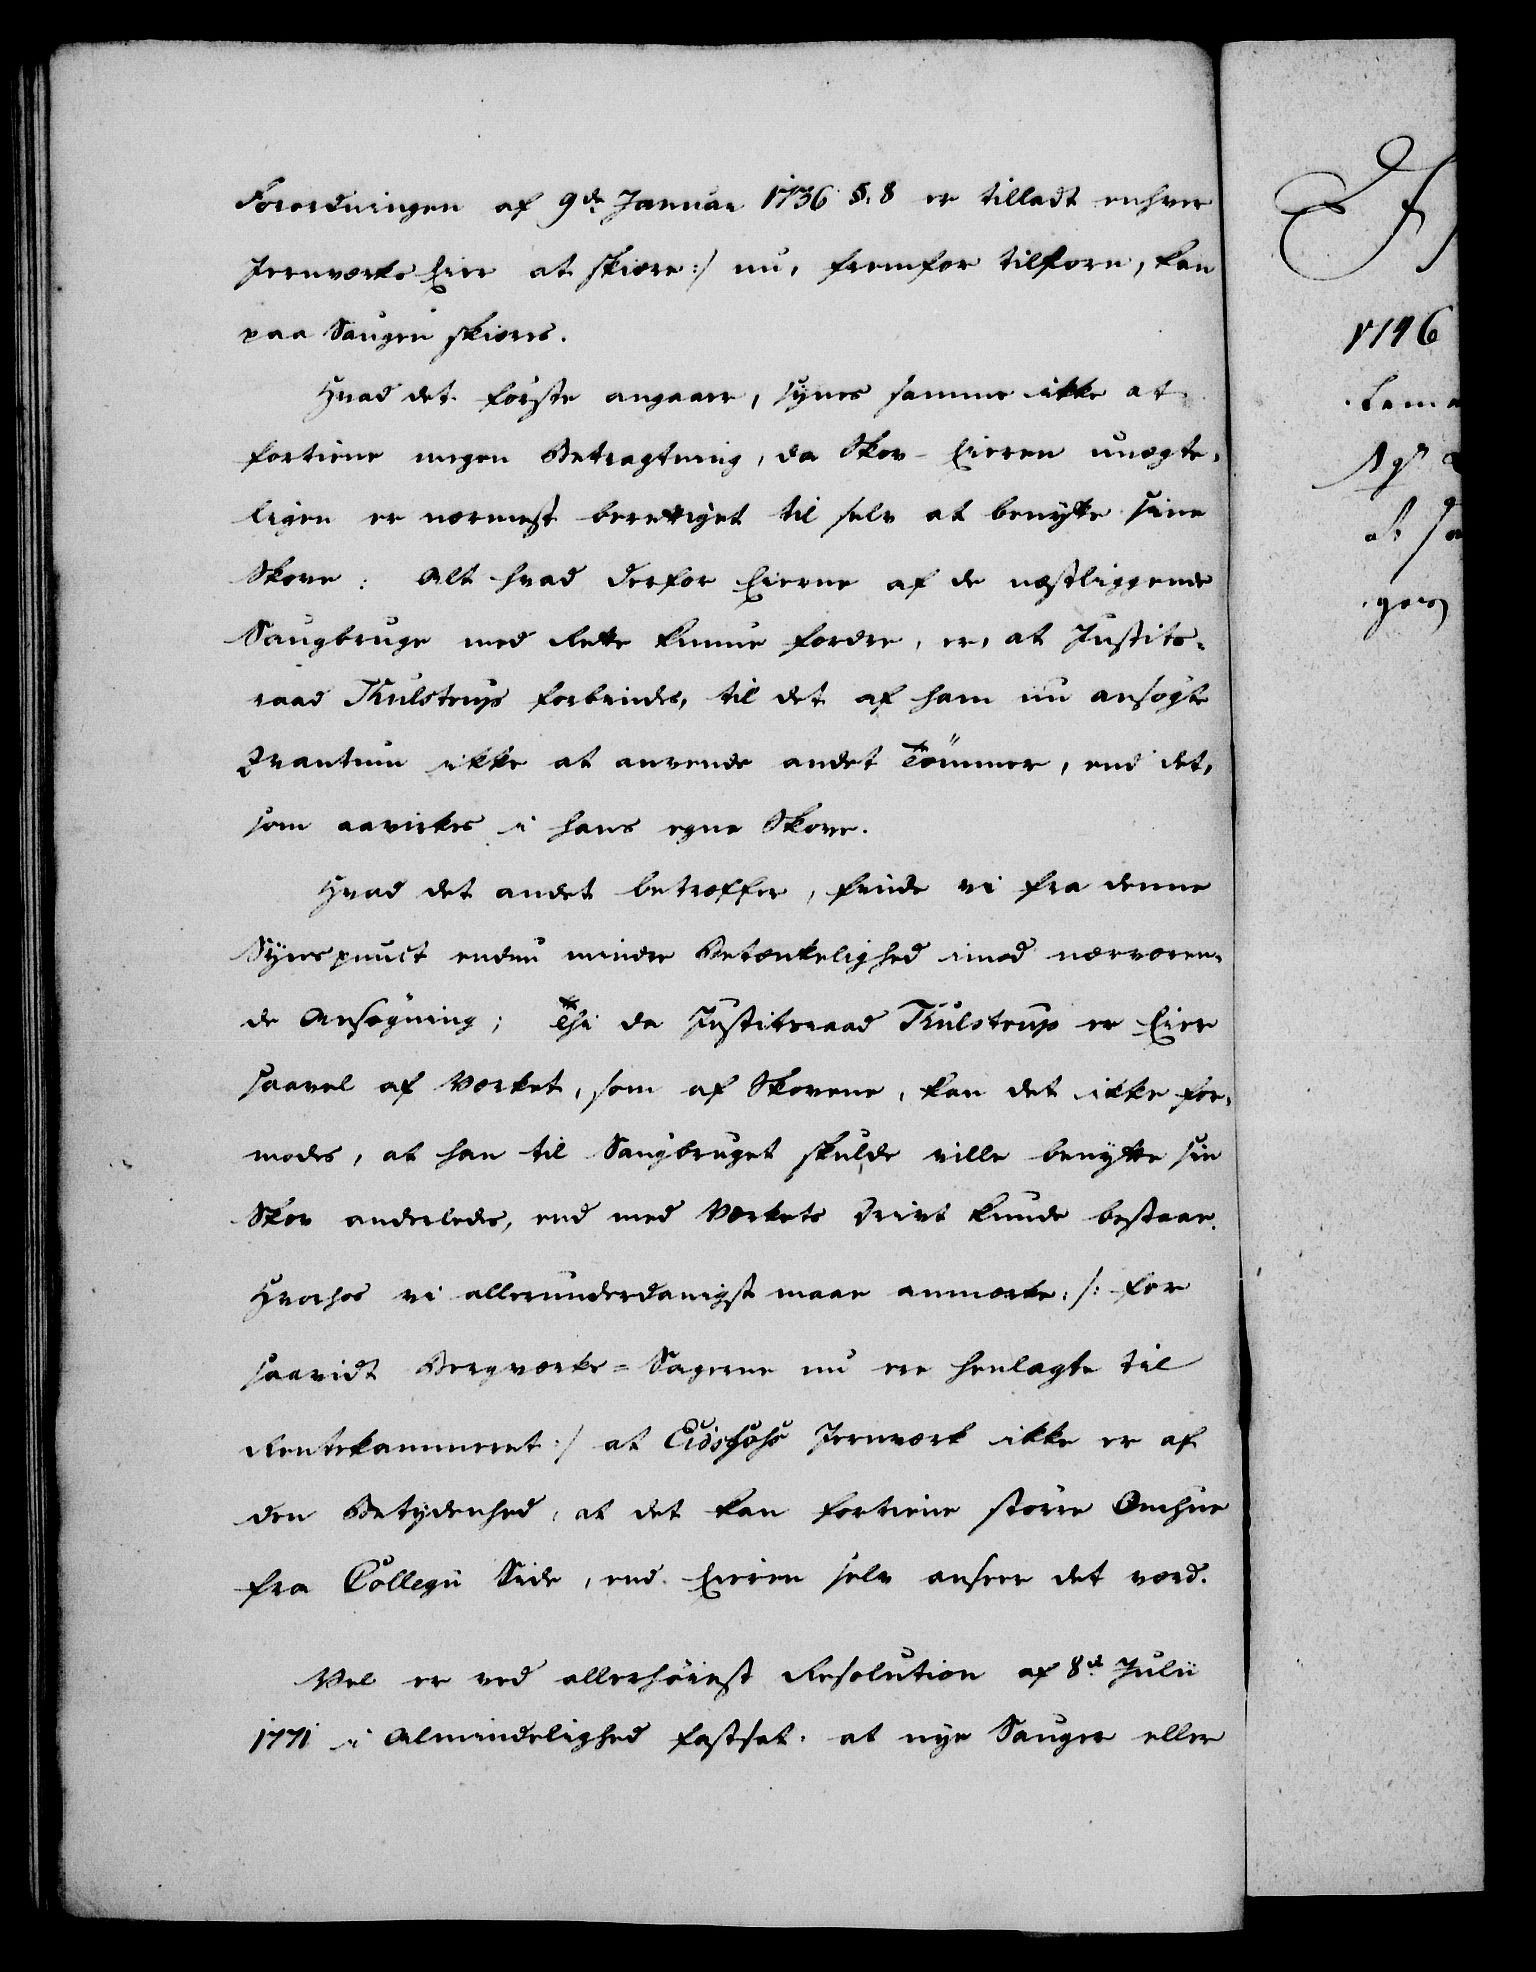 Forordningen af 9de Januar 1736 §. 8 er tilladt enhver
Jernværks Eier at skiære :/ nu, fremfor tilforn, kan
paa Saugen skiæres.
Hvad det første angaaer, synes samme ikke at
fortiene nogen Betragtning, da Skov-Eieren unægte-
ligen er nærmest berettiget til selv at benytte sine
Skove: Alt hvad derfor Eierne af de næstliggende
Saugbruge med Rette kunne fordre, er, at Justits-
raad Tkulstrup forbindes, til det af ham nu ansøgte
Qvantum ikke at anvende andet Tömmer, end det,
som aavirkes i hans egne Skove.
Hvad det andet betræffer, finde vi fra denne
Synspunct endnu mindre Betænkelighed imod nærværen-
de Ansøgning; Thi da Justitsraad Tkulstrup er Eier
saavel af Værket, som af Skovene, kan det ikke for-
modes, at han til Saugbruget skulde ville benytte sin
Skov anderledes, end med Værkets Drivt kunde bestaae.
Hvorhos vi allerunderdanigst maae anmærke: /: for
saavidt Bergværks-Sagerne nu ere henlagte til
Rentekammeret :/ at Eidsfos Jernværk ikke er af
den Betydenhed, at det kan fortiene større Omhue
fra Collegii Side, end Eieren selv anseer det værd.
Vel er ved allerhöiest Resolution af 8de Julii
1771 i Almindelighed fastsat, at nye Sauger eller